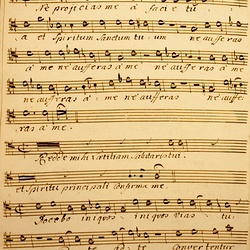 Ne projicias me a facie tu:
a et Spiritum Sanctum tu: um ne auferas
a me ne auferas a me ne auferas a me
ne auferas a me ne auferas ne aufe
ras a me.
Redde mihi lætitiam salutaris tui.
et spiritu principali confirma me.
Docebo iniquos iniquos vias tu:
ad te convertentur